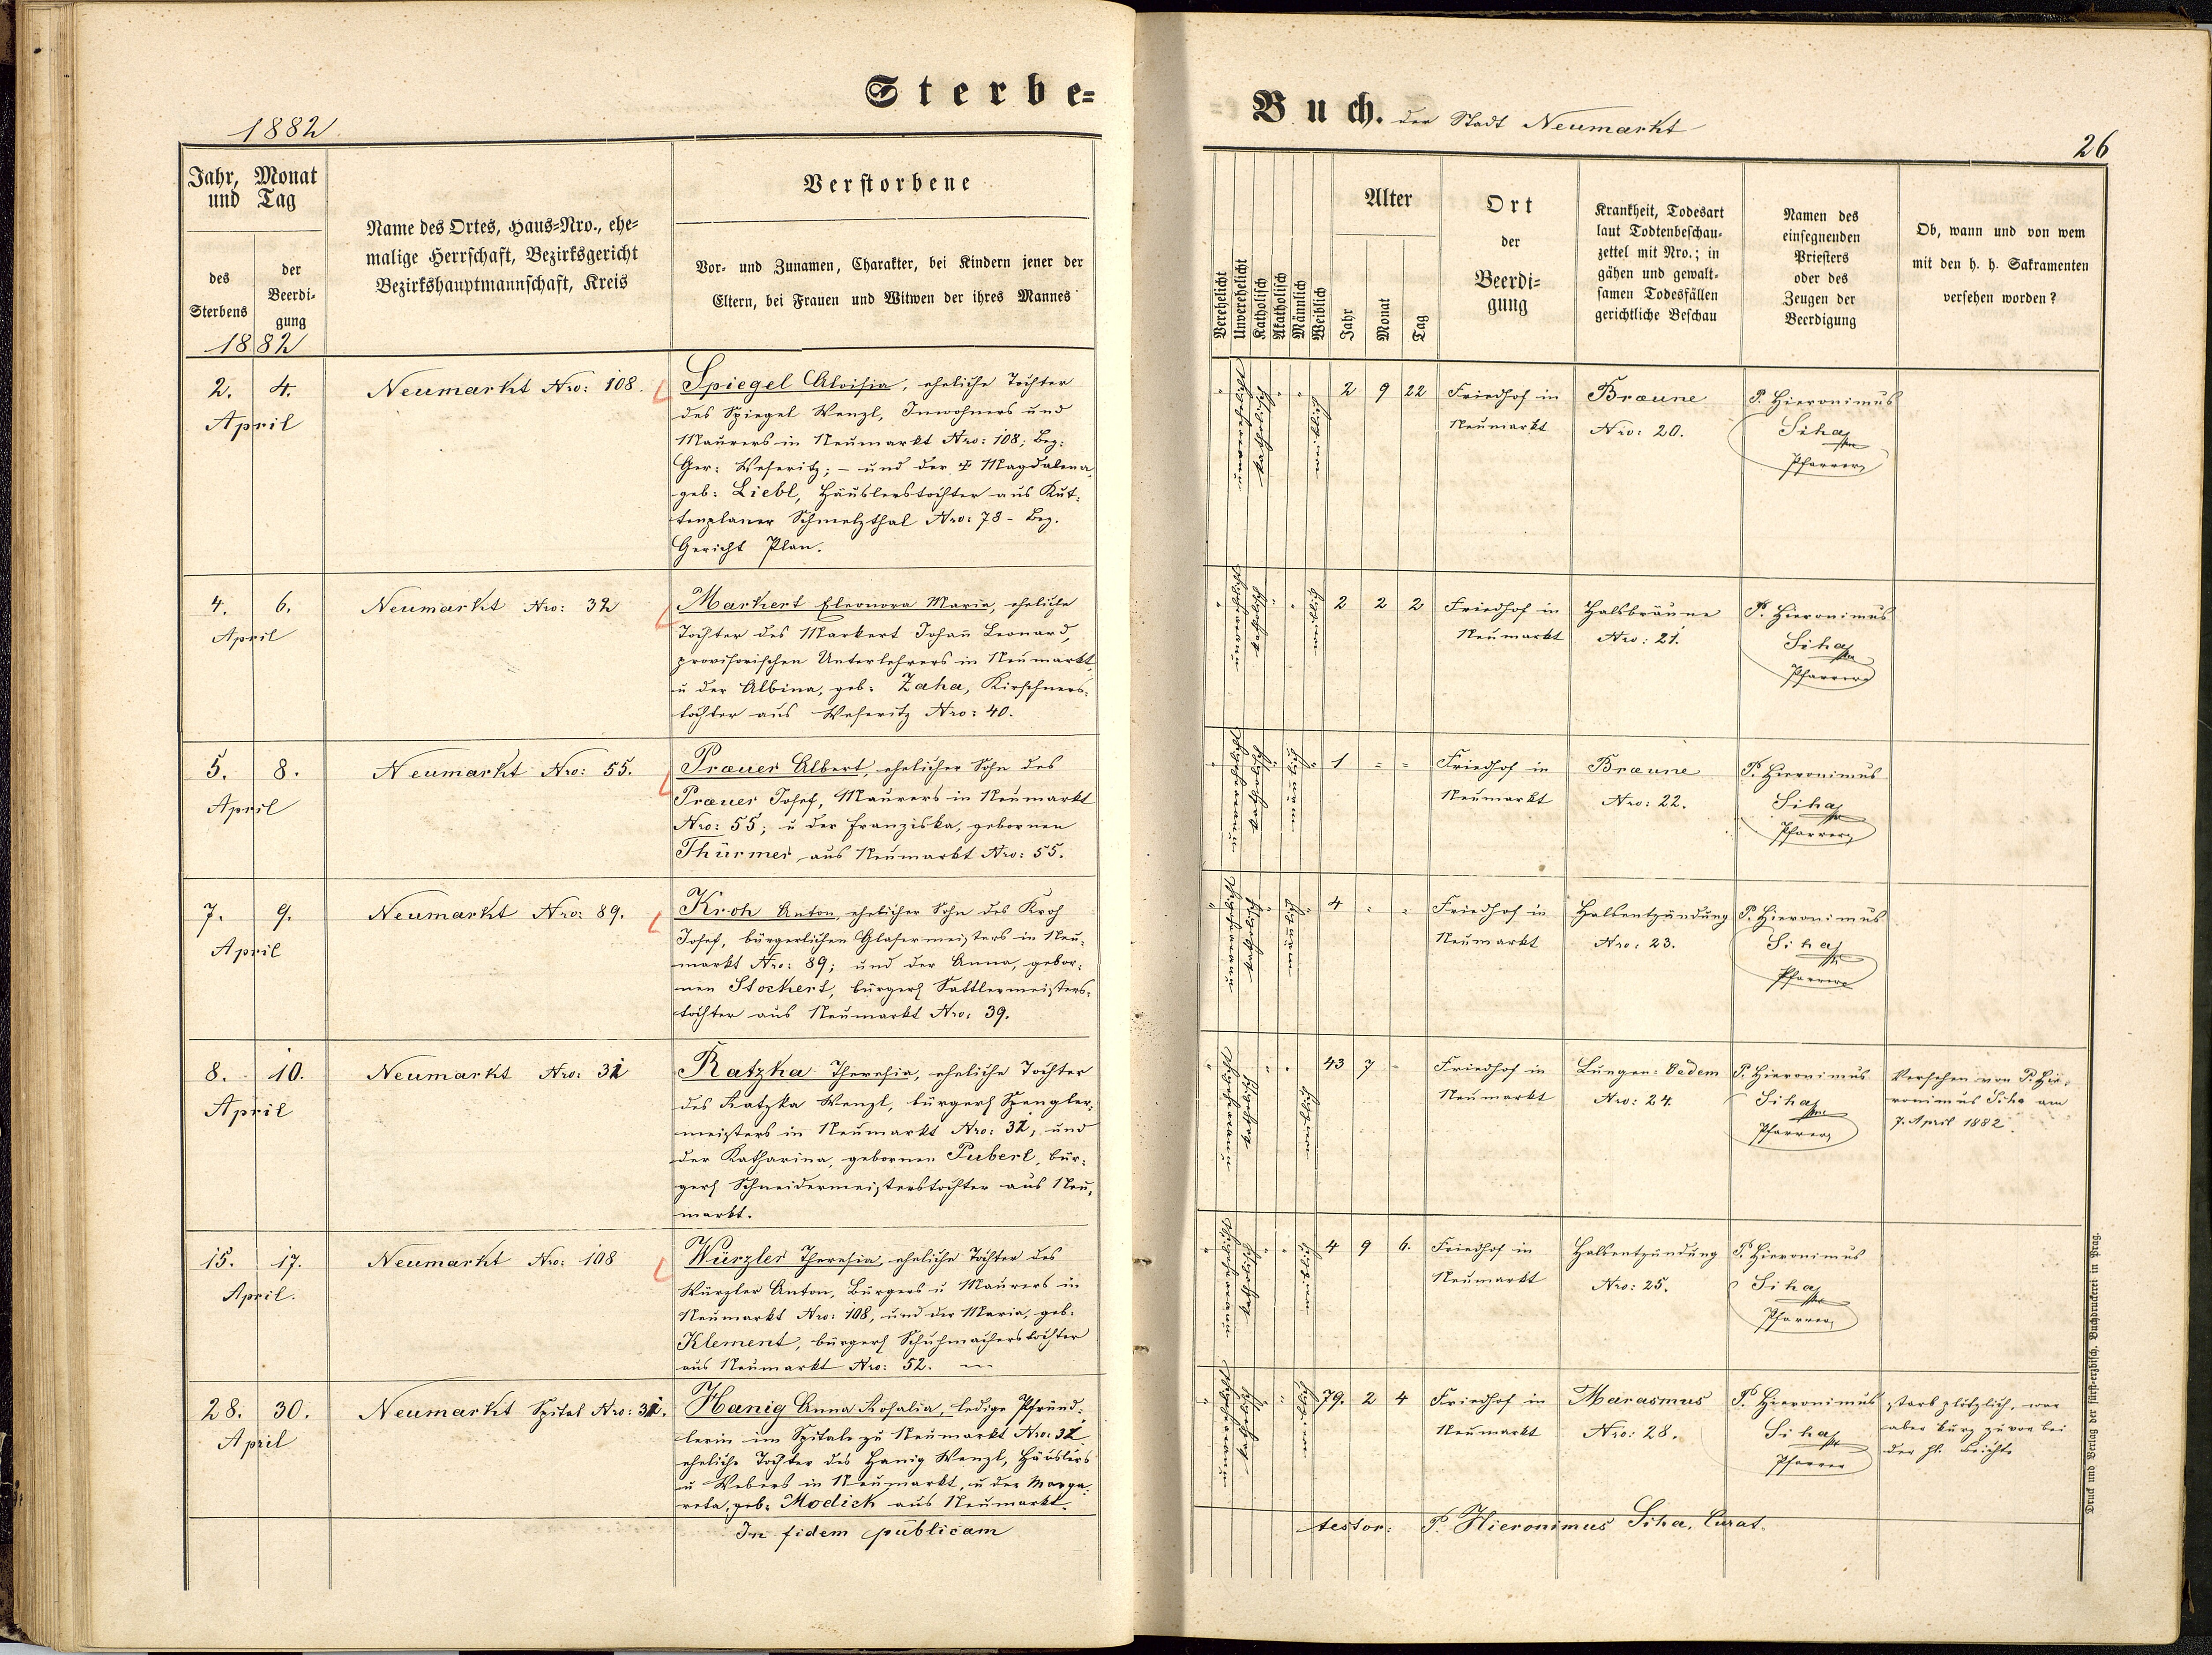 Sterbe=
Buch. der Stadt Neumarkt
1882
26
Jahr, Monat
und Tag
des
Sterbens
der
Beerdi-
gung
1882
Name des Ortes, Haus=Nro., ehe=
malige Herrschaft, Bezirksgericht
Bezirkshauptmannschaft, Kreis
Verstorbene
Vor- und Zunamen, Charakter, bei Kindern jener der
Eltern, bei Frauen und Witwen der ihres Mannes
Verehelicht
Unverehelicht
Katholisch
Akatholisch
Männlich
Weiblich
Alter
Jahr
Monat
Tag
Ort
der
Beerdi=
gung
Krankheit, Todesart
laut Todtenbeschau-
zettel mit Nro.; in
gähen und gewalt-
samen Todesfällen
gerichtliche Beschau
Namen des
einsegnenden
Priesters
oder des
Zeugen der
Beerdigung
Ob, wann und von wem
mit den h. h. Sakramenten
versehen worden?
2. 4.
April
Neumarkt Nro: 108
Spiegel Aloisia, eheliche Tochter
des Spiegel Wenzl, Inwohners und
Maurers in Neumarkt Nro: 108; Bez:
Ger: Weseritz; – und der Magdalena
geb: Liebl, Häuslerstochter aus Kut=
tenplaner Schmelzthal Nro: 78 - Bez.
Gericht Plan.
2 9 22
Friedhof in
Neumarkt
Braune
Nro: 20.
P. Hieronimus
Siha
Pfarrer
4. 6.
April
Neumarkt Nro: 32
Markert Eleonora Maria, eheliche
Tochter des Markert Johan̄ Leonard,
provisorischen Unterlehrers in Neumarkt
u der Albina, geb: Zaha, Kirschners=
tochter aus Weseritz Nro: 40.
2 2 2
Friedhof in
Neumarkt
Halsbräune
Nro: 21.
P. Hieronimus
Siha
Pfarrer
5. 8.
April
Neumarkt Nro: 55.
Prauer Albert, ehelicher Sohn des
Prauer Josef, Maurers in Neumarkt
Nro: 55; u der Franziska, gebornen
Thürmer aus Neumarkt Nro: 55.
1 = =
Friedhof in
Neumarkt
Braune
Nro: 22.
P. Hieronimus
Siha
Pfarrer
7. 9.
April
Neumarkt Nro: 89.
Kroh Anton, ehelicher Sohn des Kroh
Josef, bürgerlichen Glasermeisters in Neu=
markt Nro: 89; und der Anna, gebor=
nen Stockert, bürgerl Sattlermeisters=
tochter aus Neumarkt Nro: 39.
4
Friedhof in
Neumarkt
Halsentzündung
Nro: 23.
P. Hieronimus
Siha
Pfarrer
8. 10.
April
Neumarkt Nro: 31
Ratzka Theresia, eheliche Tochter
des Ratzka Wenzl, bürgerl Spengler=
meisters in Neumarkt Nro: 31, und
der Katharina, gebornen Puberl, bür=
gerl Schneidermeisterstochter aus Neu=
markt.
43 7
Friedhof in
Neumarkt
Lungen=Oedem
Nro: 24.
P. Hieronimus
Siha
Pfarrer
Versehen von P. Hie=
ronimus Siha am
7. April 1882
15. 17.
April.
Neumarkt Nro: 108
Würzler Theresia, eheliche Tochter des
Würzler Anton, Bürgers u Maurers in
Neumarkt Nro: 108, und der Maria, geb.
Klement, bürgerl Schuhmacherstochter
aus Neumarkt Nro: 52.
4 9 6.
Friedhof in
Neumarkt
Halsentzündung
Nro: 25.
P. Hieronimus
Siha
Pfarrer
28. 30.
April
Neumarkt Spital Nro:
Hanig Anna Rosalia, ledige Pfründ=
lerin im Spitale zu Neumarkt Nro:
eheliche Tochter des Hanig Wenzl, Häuslers
u Webers in Neumarkt, u der Marga=
reta, geb: Modick aus Neumarkt.
79. 2 4
Friedhof in
Neumarkt
Marasmus
Nro: 28.
P. Hieronimus
Siha
Pfarrer
starb plötzlich, war
aber kurz zuvor bei
der hl. Beichte
In fidem publicam
testor: P. Hieronimus Siha, Curat.
Druck und Verlag der fürst-erzbisch. Buchdruckerei in Prag.